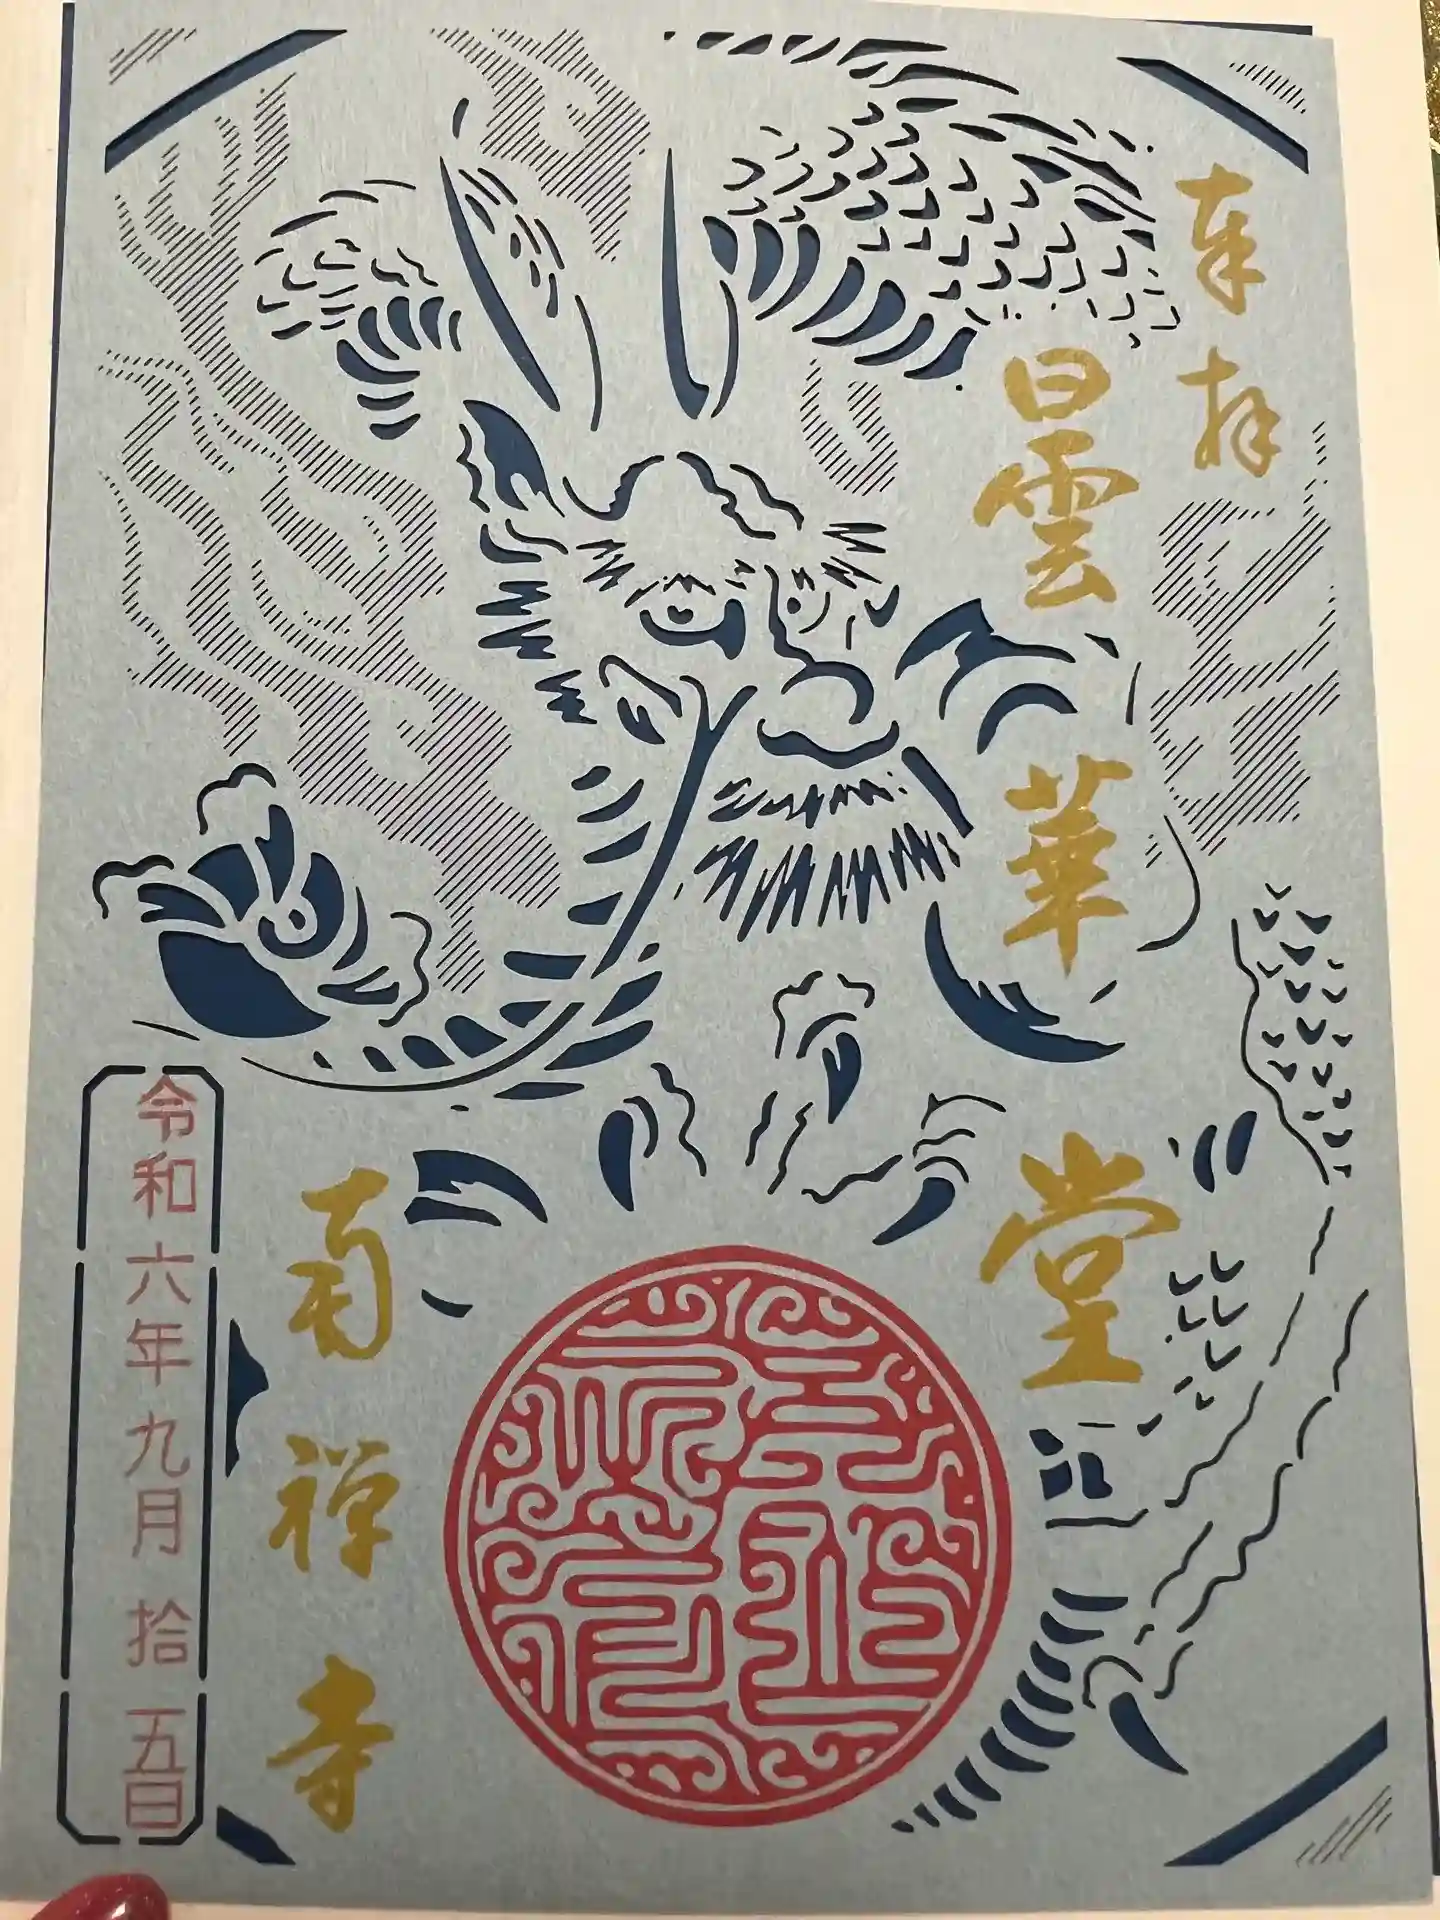 奉拝
曇華堂
南禅寺
令和六年九月拾五日